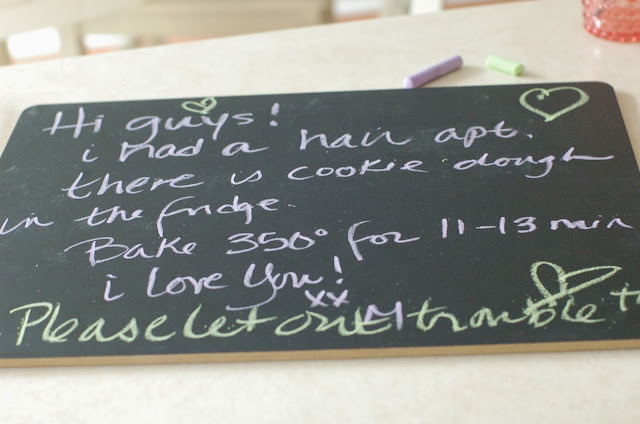 Hi guys!
i had a hair apt.
there is cookie dough
in the fridge.
Bake 350° for 11-13 min
i love you!
xx M
Please let out trouble